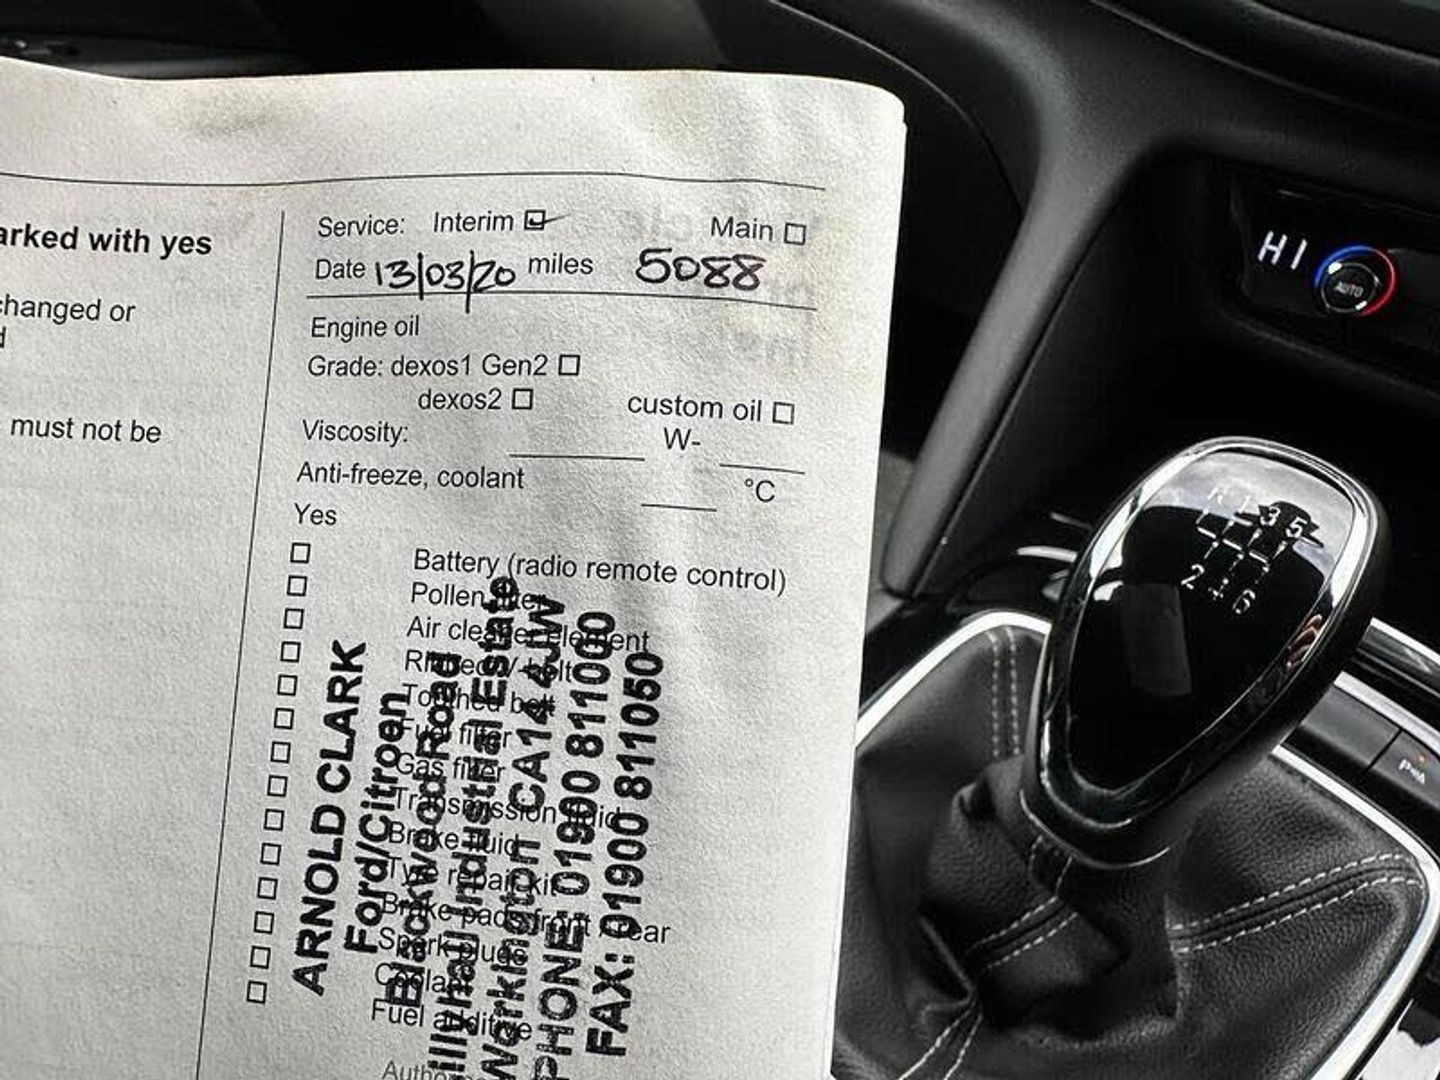 arked with yes
changed or
must not be
Service: Interim ☑ Main ☐
Date 13/03/20 miles 5088
Engine oil
Grade: dexos1 Gen2 ☐
dexos2 ☐ custom oil ☐
Viscosity: W-
Anti-freeze, coolant °C
Yes
☐ Battery (radio remote control)
☐ Pollen filter
☐ Air cleaner element
☐ Ribbed V-belt
☐ Toothed belt
☐ Fuel filter
☐ Gas filter
☐ Transmission fluid
☐ Brake fluid
☐ Tyre repair kit
☐ Brake pads front / rear
☐ Spark plugs
☐ Coolant
☐ Fuel additive
ARNOLD CLARK
Ford/Citroen
Blackwood Road
illyhall Industrial Estate
Workington CA14 4JW
PHONE 01900 811000
FAX: 01900 811050
HI
AUTO
R 1 3 5
2 4 6